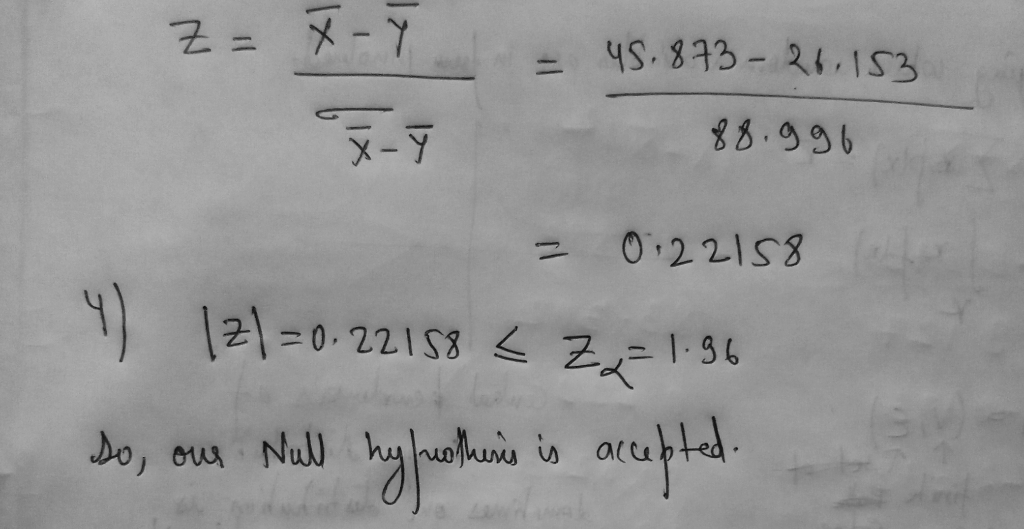 Z = X̄ - Ȳ / σ X̄ - Ȳ = 45.873 - 26.153 / 88.996
= 0.22158
4) |Z| = 0.22158 ≤ Zα = 1.96
So, our Null hypothesis is accepted.